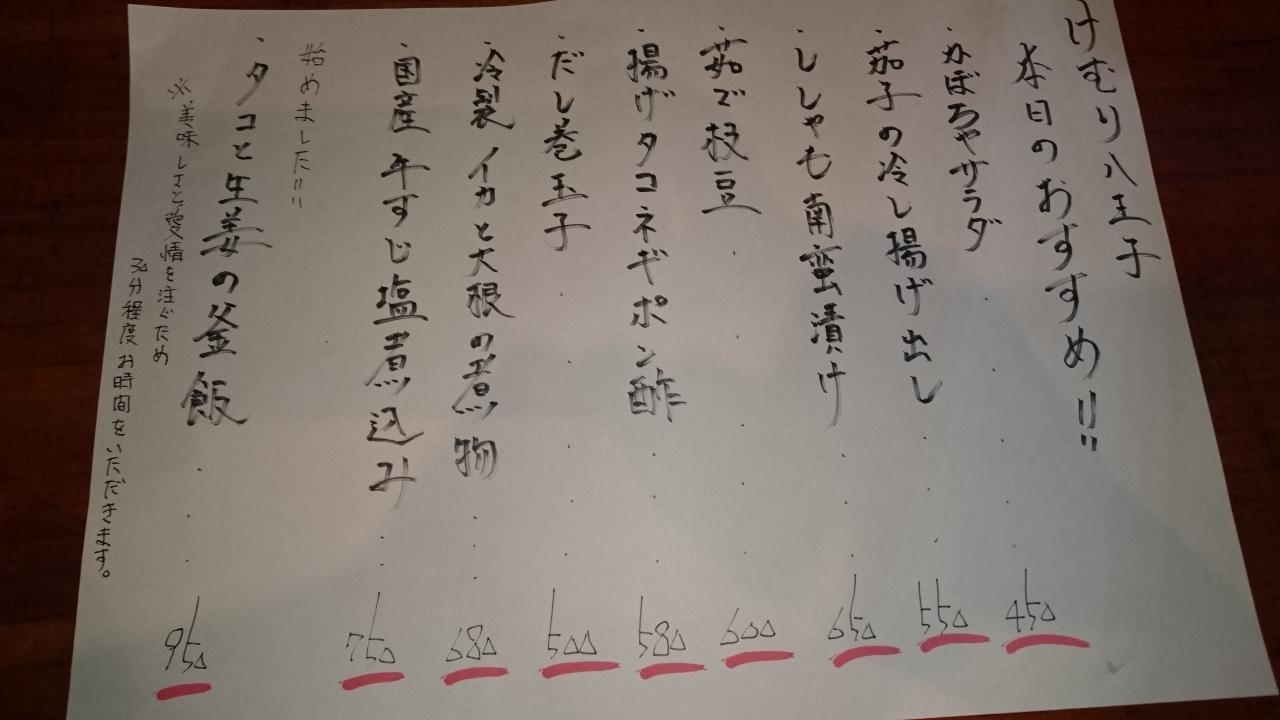 けむり八王子
本日のおすすめ!!
・かぼちゃサラダ・・・450
・茄子の冷し揚げ出し・・550
・ししゃも南蛮漬け・・・650
・茹で枝豆・・・・600
・揚げタコネギポン酢・・・580
・だし巻玉子・・・・500
・冷製イカと大根の煮物・・・680
・国産牛すじ塩煮込み・・750
始めました!!
・タコと生姜の釜飯・・・950
※美味しさと愛情を注ぐため
30分程度お時間をいただきます。